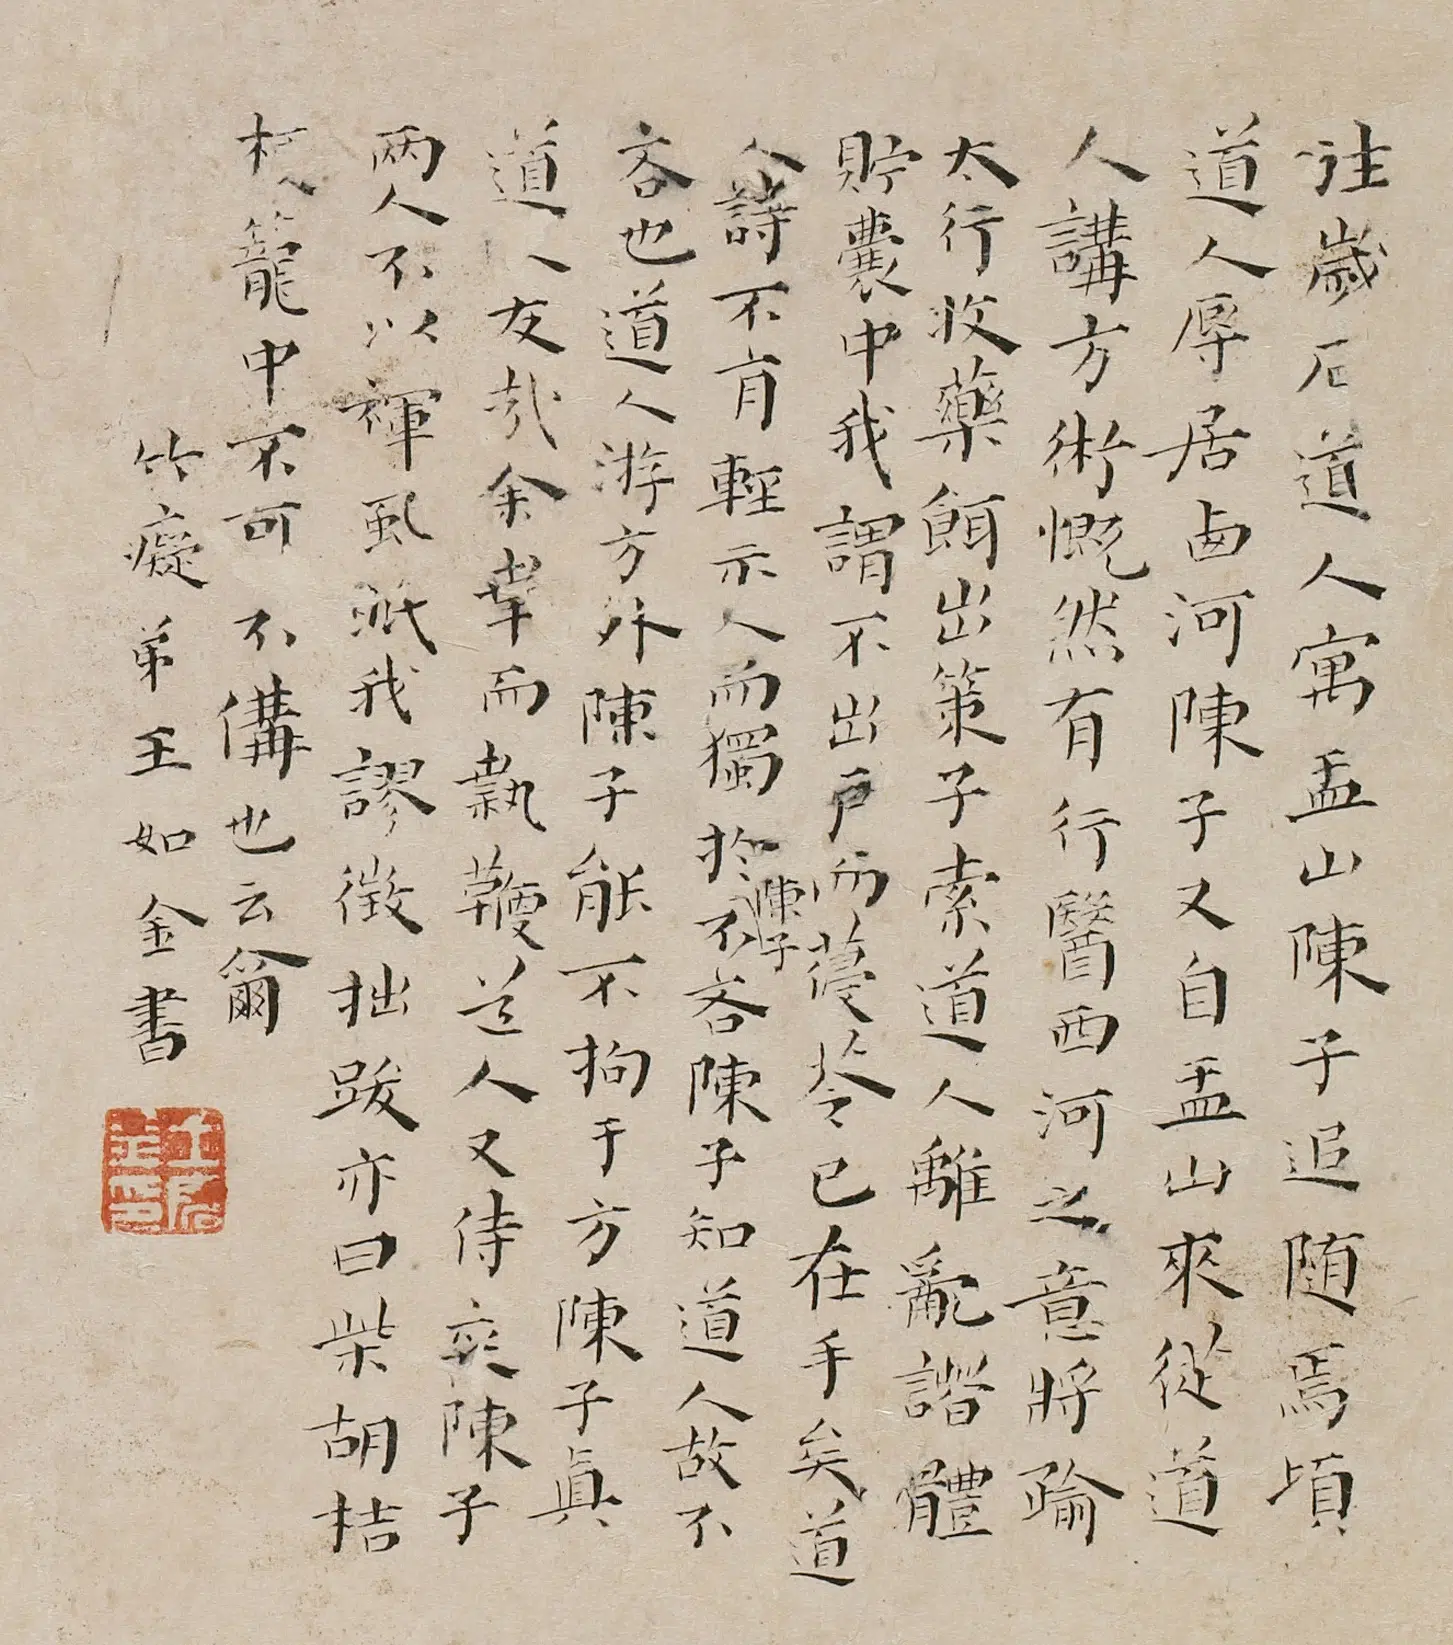 往歲石道人寓盂山陳子追随焉頃
道人辱居西河陳子又自盂山來從道
人講方術慨然有行醫西河之意將踰
太行收藥餌出策子索道人離亂諧體
貯囊中我謂不出戶而蓡苓已在手矣道
人詩不肯輕示人而獨於
陳子
不吝陳子知道人故不
吝也道人游方外陳子能不拘于方陳子眞
道人友哉余幸而執鞭道人又侍爽陳子
兩人不以褌虱眡我謬徵拙跋亦曰柴胡桔
梗籠中不可不備也云爾
竹癡弟王如金書